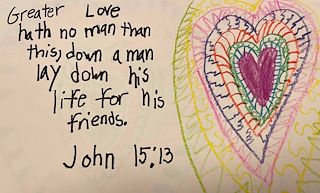 Greater Love
hath no man than
this, down a man
lay down his
life for his
friends.
John 15:13